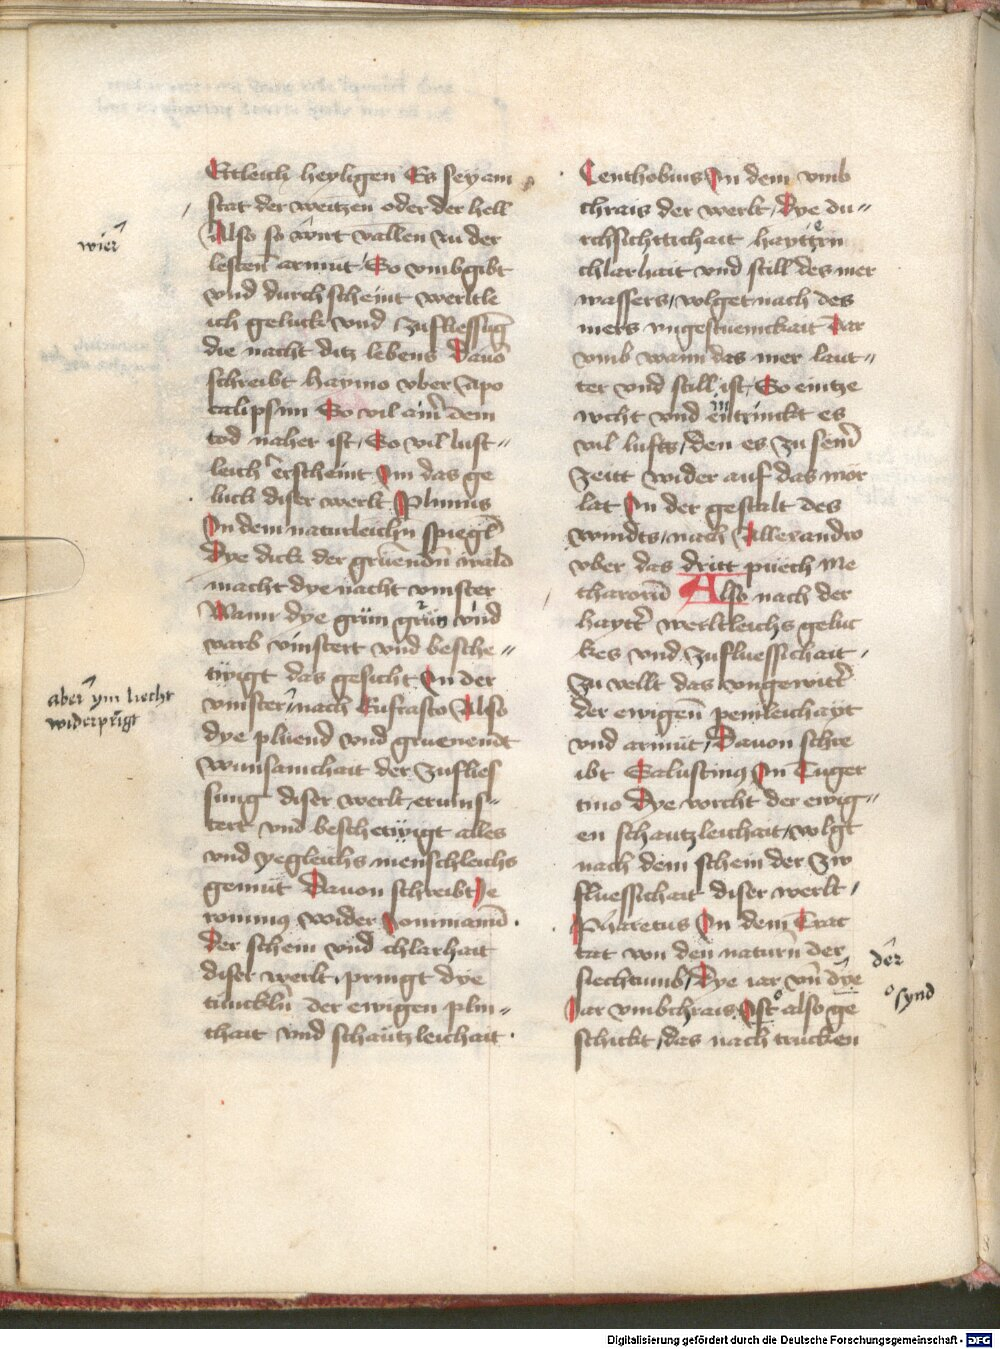 Ettleich heyligen Es sey am
stat der weitzen oder der hell
Also so wirt vallen zu der
lesten armut So vmbgibt
vnd durchscheint werltle
ich geluck vnd zufliessūg
die nacht ditz lebens Dauō
schreibt haymo vber Apo
calipsim So vil ain dem
tod naher ist, So vil lust-
leich erscheint Im das ge
luck diser werlt Plinius
In dem naturleichn spiegl
Dye dick der gruenōdn wald
macht dye nacht vinster
Wann dye grün grün vnd
varb vinstert vnd besche-
twigt das gesicht In der
vinster, nach Eufrasto Also
dye pluend vnd gruenendt
wunsamchait der zuflies
sung diser werlt, ervins-
tert vnd beschetwigt alles
vnd yegleichs menschleichs
gemut Dauon schreibt Je
ronimus wider Jouinianū.
Der schein vnd chlarhait
diser werlt, pringt dye
tunckln der ewigen plin-
thait vnd schautzleichait.
wier
aber ym liecht
widerprigt
Centhobius In dem vmb
chrais der werlt, Dye du-
rchsichttichait hayttern
chlarhait vnd still des mer
wassers, volget nach des
mers vngestuemckait Dar
vmb wann das mer laut-
ter vnd still ist, So eintze
wcht vnd entrinckt es
vil lufts, den es zu seinē
zeitt wider auf das mor
lat In der gestalt des
windts, nach Allexandro
vber das dritt puech Me
tharorū Also nach der
haytter werltleichs geluc
kes vnd zufluessichait,
zu vellt das vngewittr
der ewigen peinleichayt
vnd armut, Dauon schre
ibt Salustinus In Tuger
tino Dye vorcht der ewig-
en schautzleichait, volgt
nach dem schein der zw
fluessichait diser werlt,
Pharetus In dem Trac
tat von den naturn der
siechtumb, Dye iar vn dye
Jar vmbchrais Ist also ge
schickt, das nach trucken
der
synd
Digitalisierung gefördert durch die Deutsche Forschungsgemeinschaft - DFG